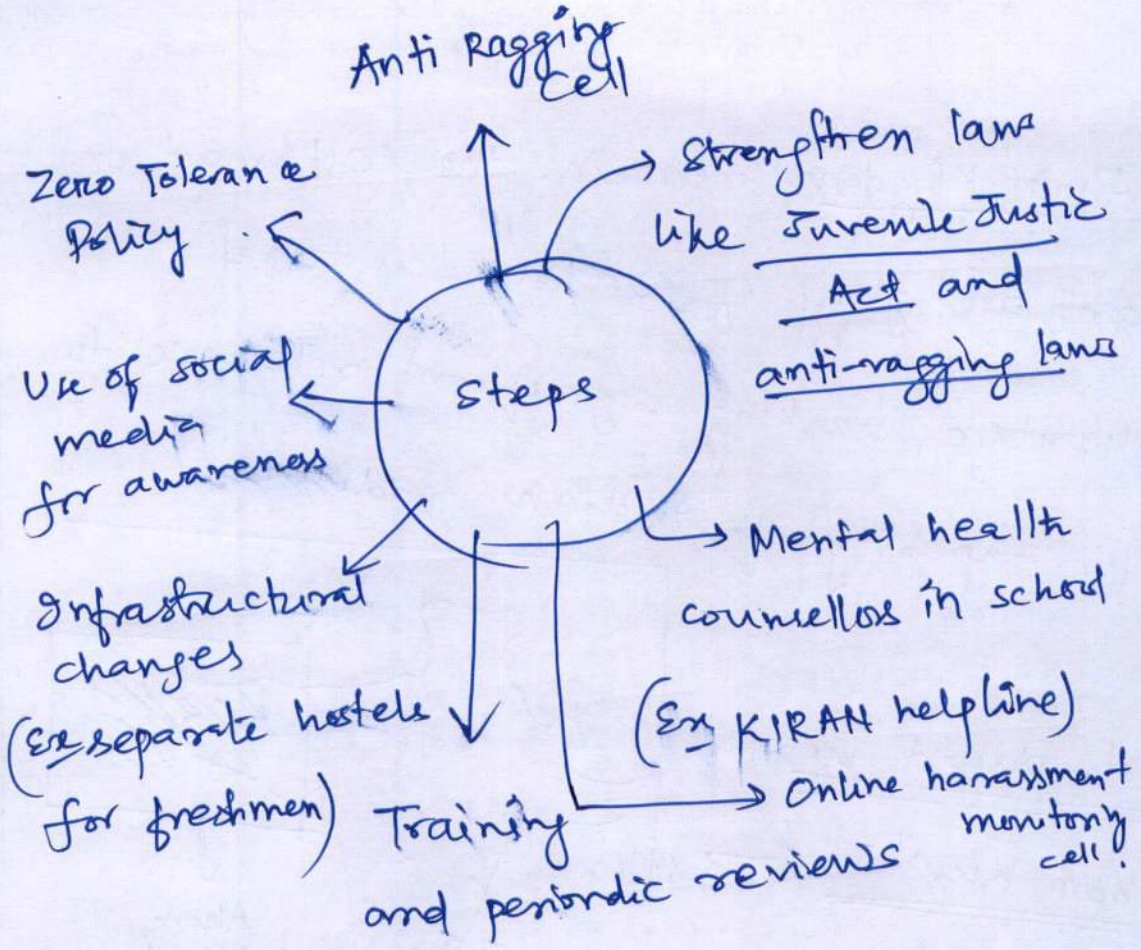 Anti Ragging
Cell
Strengthen laws
like Juvenile Justic
Act and
anti-ragging laws
Zero Tolerance
Policy
Steps
Use of social
media
for awareness
Mental health
counsellors in school
(Ex KIRAN helpline)
Infrastructural
changes
(Ex separate hostels
for freshmen)
Training
and periondic reviews
Online harassment
monitoring
cell.